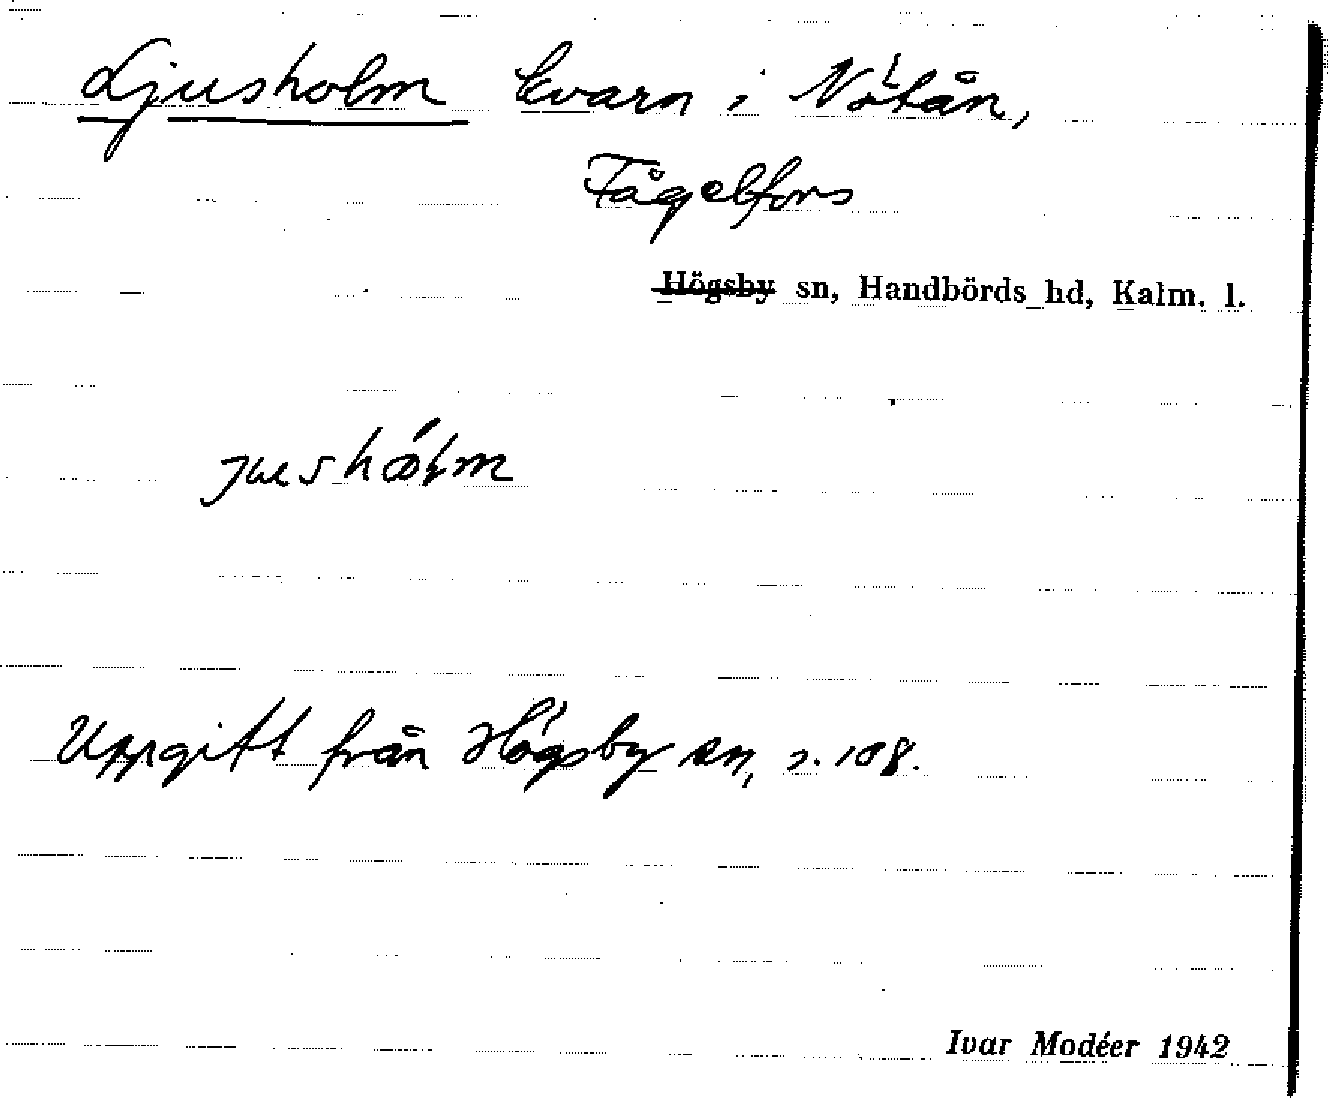 Ljusholm kvarn i Nötån,
Fågelfors
Högsby sn, Handbörds hd, Kalm. l.
Uppgift från Högsby sn, s. 108.
Ivar Modéer 1942